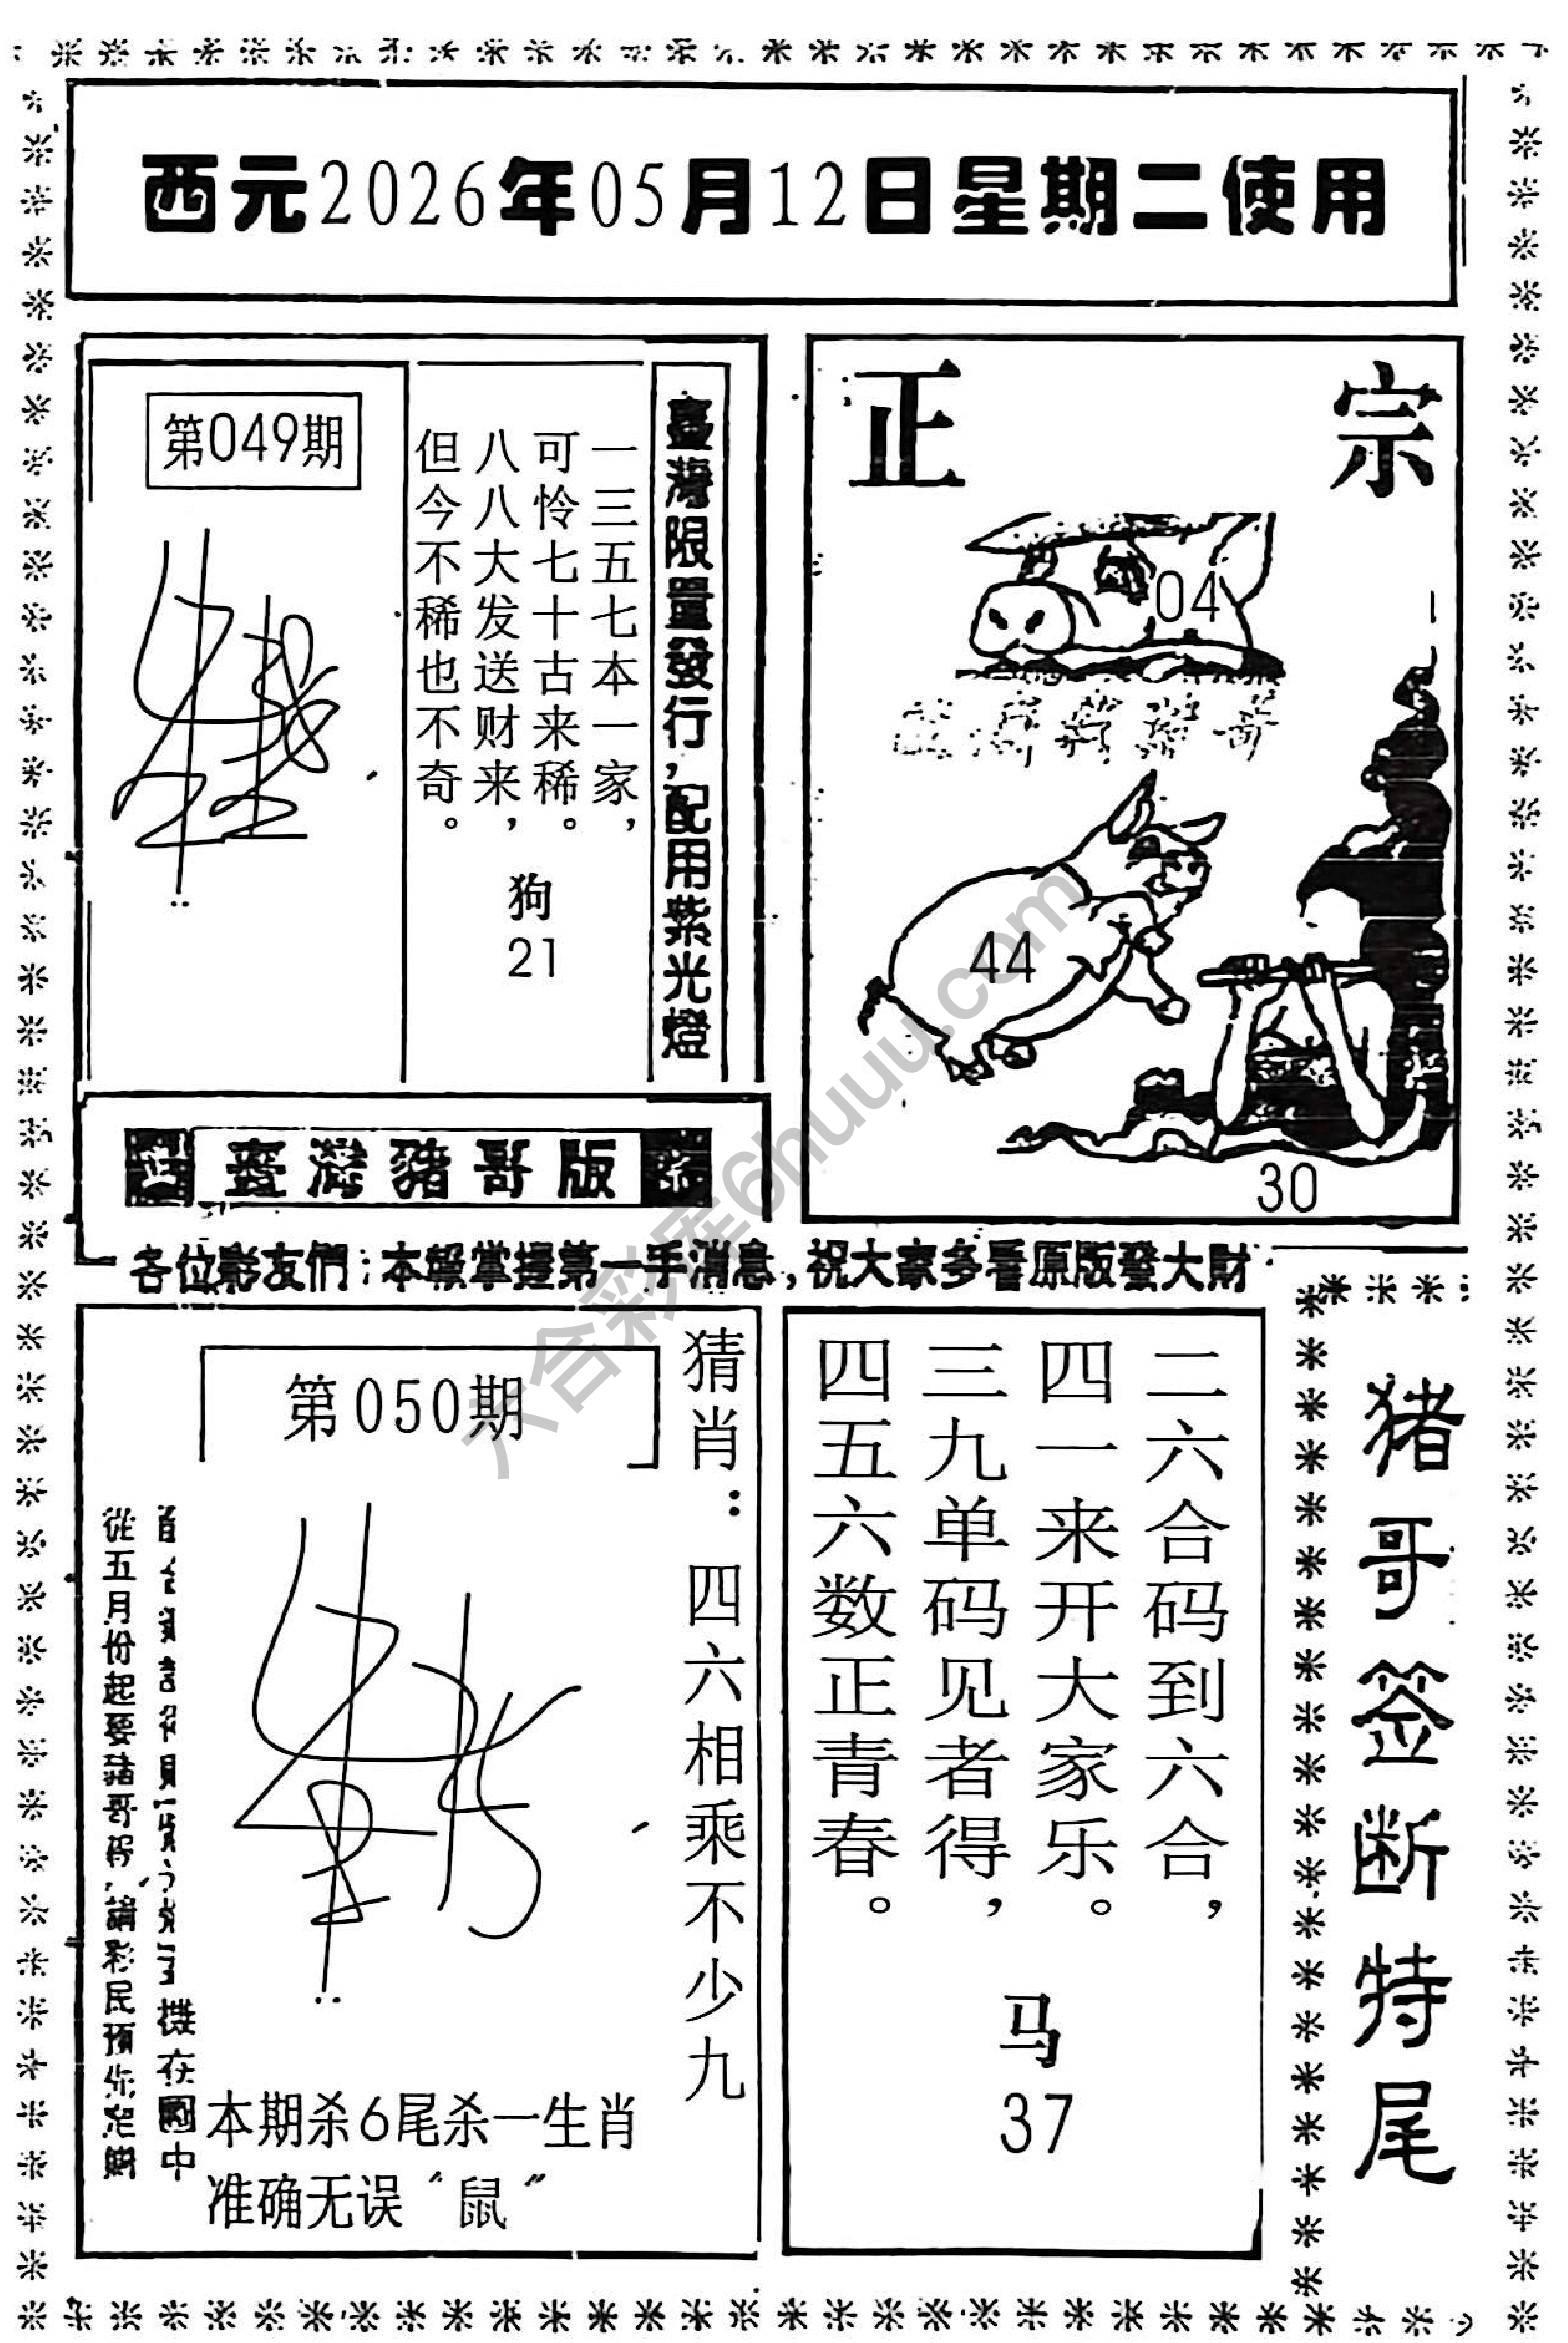 西元2026年05月12日星期二使用
第049期
一三五七本一家，
可怜七十古来稀。
八八大发送财来，
但今不稀也不奇。
狗
21
臺灣限量發行，配用紫光燈
正宗
04
44
30
臺灣豬哥版
各位彩友們：本報掌握第一手消息，祝大家多看原版發大財
第050期
猜肖：四六相乘不少九
從五月份起要豬哥
請彩民預
機在國中
本期杀6尾杀一生肖
准确无误“鼠”
二六合码到六合，
四一来开大家乐。
三九单码见者得，
四五六数正青春。
马
37
猪哥签断特尾
六合彩库6huuu.com